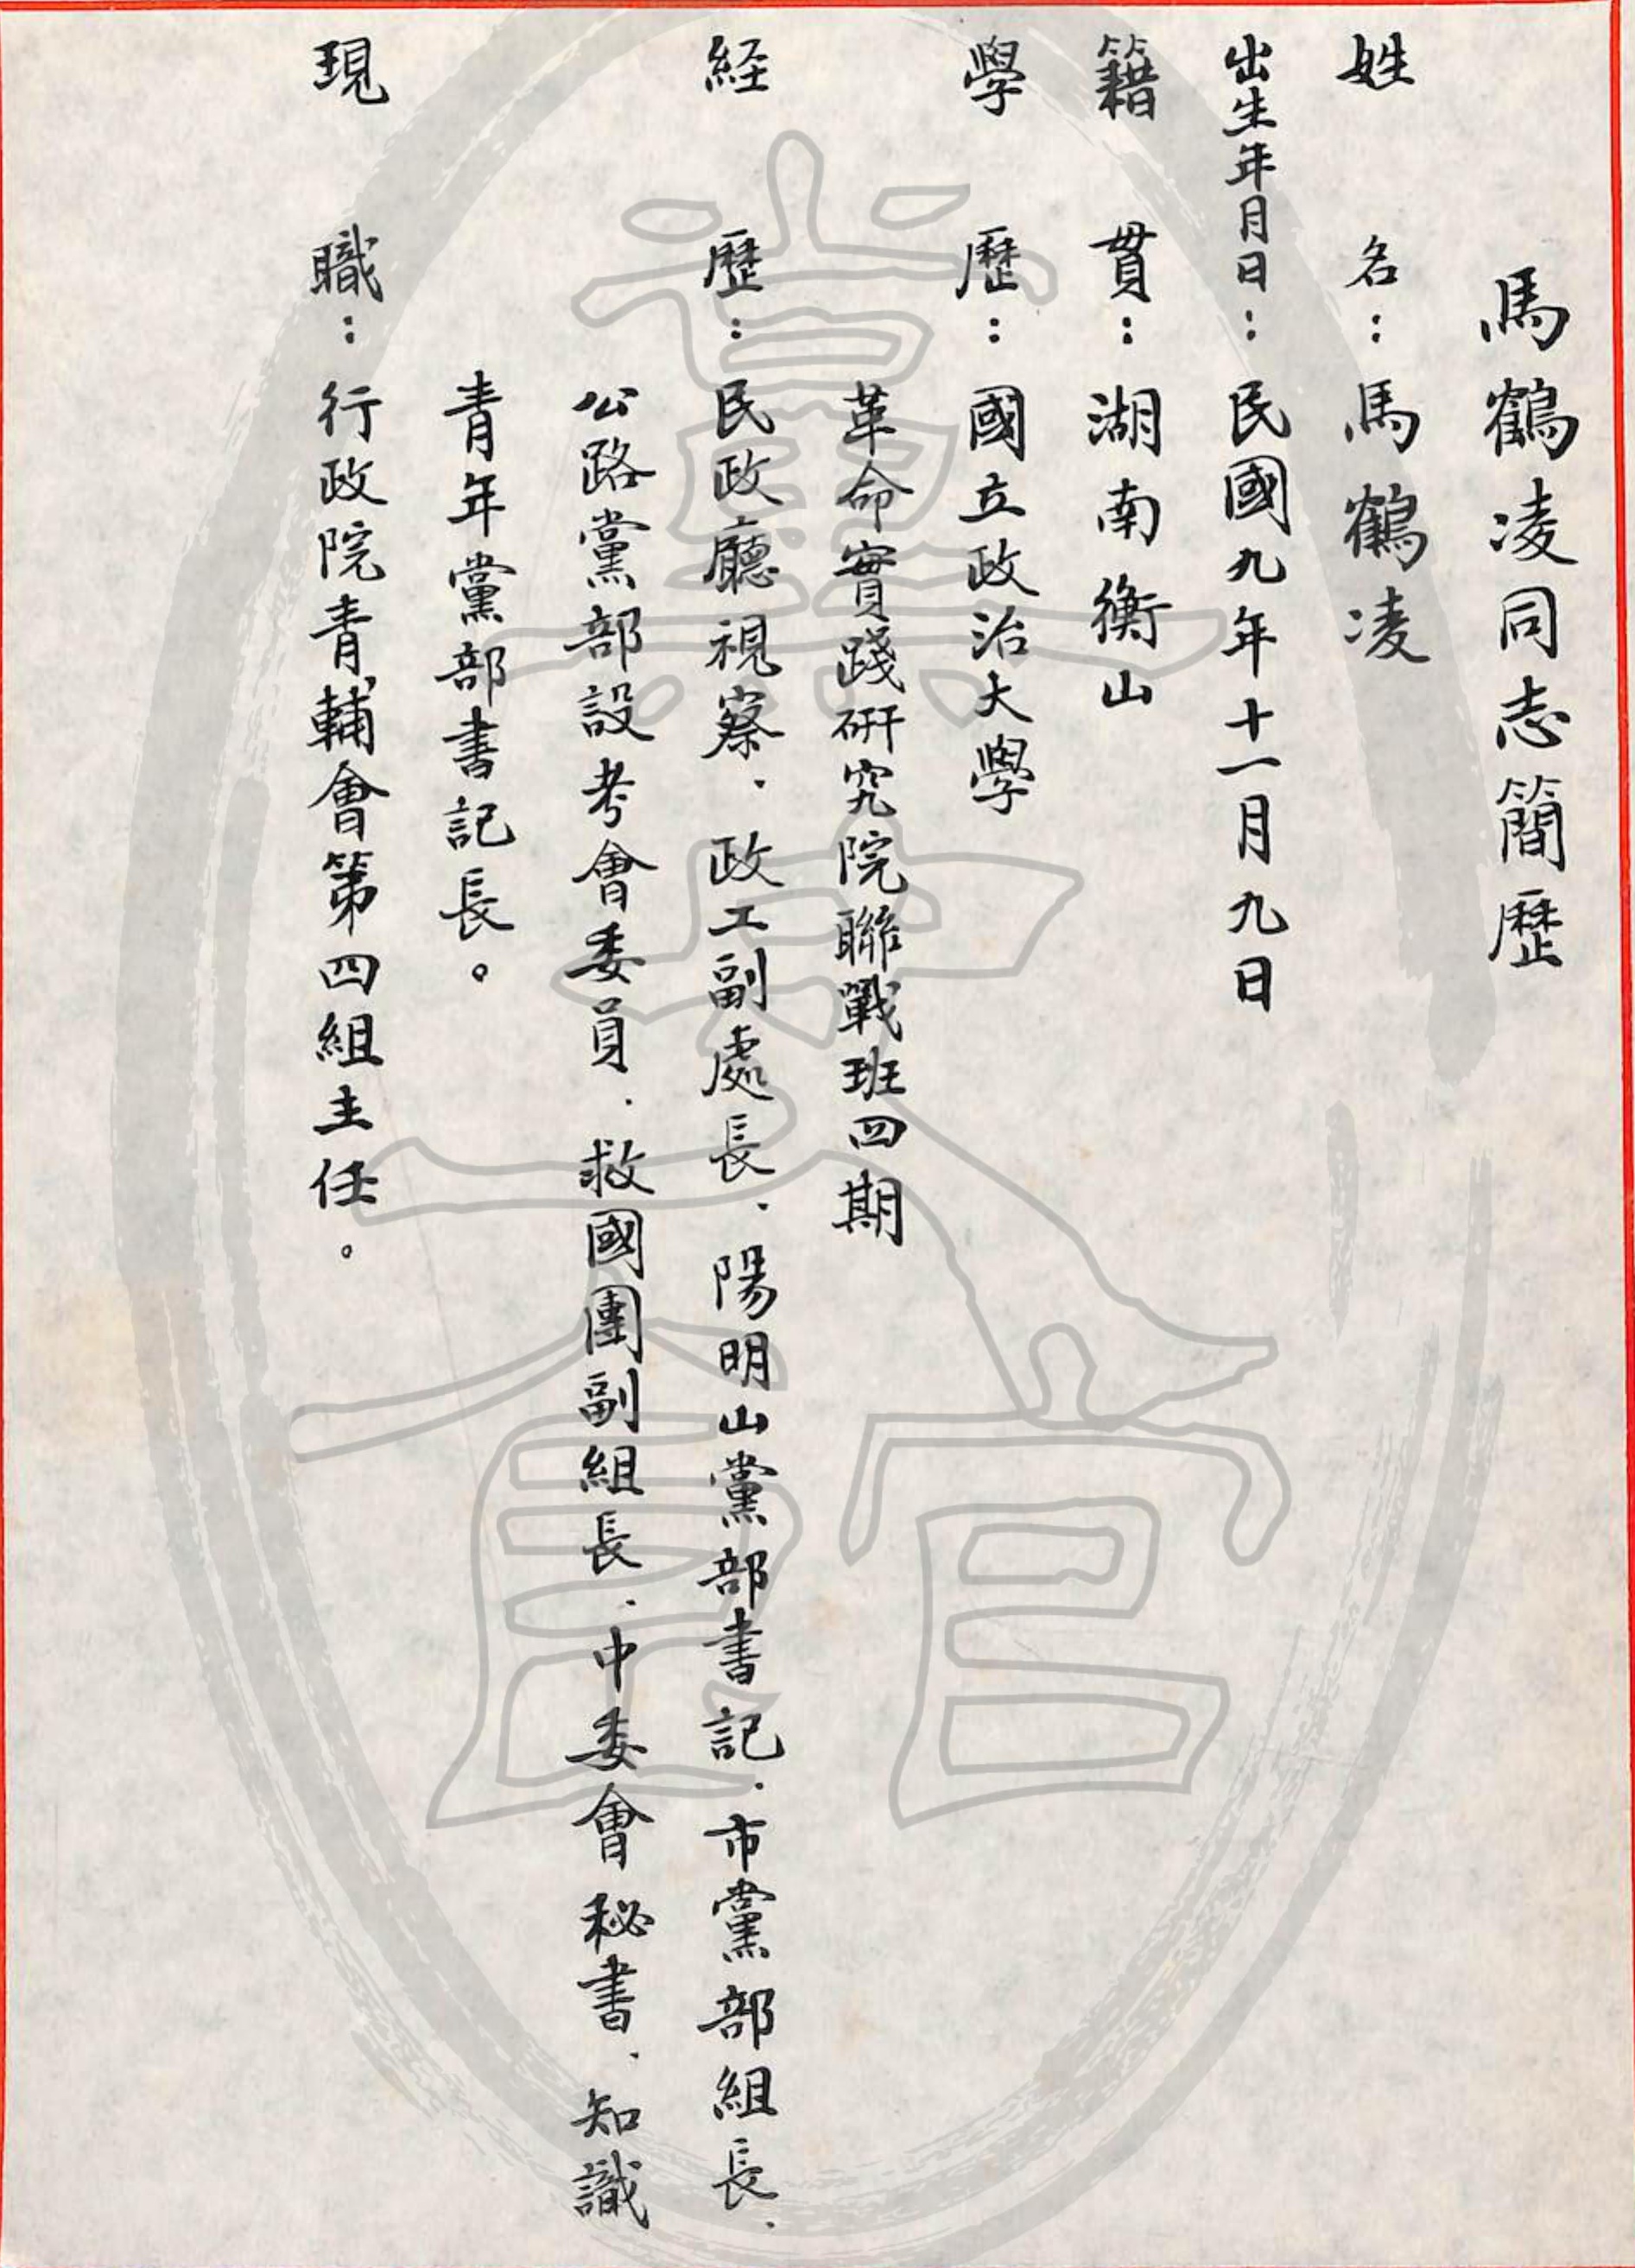 馬鶴凌同志簡歷
姓名：馬鶴凌
出生年月日：民國九年十一月九日
籍貫：湖南衡山
學歷：國立政治大學
革命實踐研究院聯戰班四期
経歷：民政廳視察、政工副處長、陽明山黨部書記、市黨部組長、
公路黨部設考會委員、救國團副組長、中委會秘書、知識
青年黨部書記長。
現職：行政院青輔會第四組主任。
國史館